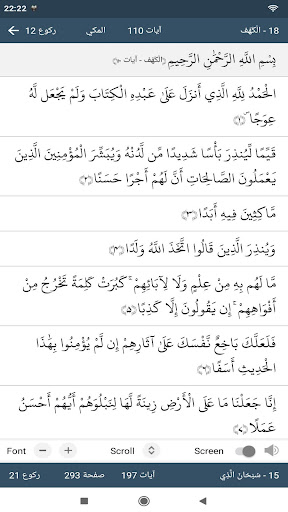 22:22
18 - الْكَهْف
آیات 110
المكي
ركوع 12
بِسْمِ اللَّهِ الرَّحْمَٰنِ الرَّحِيمِ
الْحَمْدُ لِلَّهِ الَّذِي أَنزَلَ عَلَىٰ عَبْدِهِ الْكِتَابَ وَلَمْ يَجْعَل لَّهُ
عِوَجًا ﴿١﴾
قَيِّمًا لِّيُنذِرَ بَأْسًا شَدِيدًا مِّن لَّدُنْهُ وَيُبَشِّرَ الْمُؤْمِنِينَ الَّذِينَ
يَعْمَلُونَ الصَّالِحَاتِ أَنَّ لَهُمْ أَجْرًا حَسَنًا ﴿٢﴾
مَّاكِثِينَ فِيهِ أَبَدًا ﴿٣﴾
وَيُنذِرَ الَّذِينَ قَالُوا اتَّخَذَ اللَّهُ وَلَدًا ﴿٤﴾
مَّا لَهُم بِهِ مِنْ عِلْمٍ وَلَا لِآبَائِهِمْ ۚ كَبُرَتْ كَلِمَةً تَخْرُجُ مِنْ
أَفْوَاهِهِمْ ۚ إِن يَقُولُونَ إِلَّا كَذِبًا ﴿٥﴾
فَلَعَلَّكَ بَاخِعٌ نَّفْسَكَ عَلَىٰ آثَارِهِمْ إِن لَّمْ يُؤْمِنُوا بِهَٰذَا
الْحَدِيثِ أَسَفًا ﴿٦﴾
إِنَّا جَعَلْنَا مَا عَلَى الْأَرْضِ زِينَةً لَّهَا لِنَبْلُوَهُمْ أَيُّهُمْ أَحْسَنُ
عَمَلًا ﴿٧﴾
Font − + Scroll Screen
15 - سُبْحَانَ الَّذِي
آیات 197
صفحة 293
ركوع 21